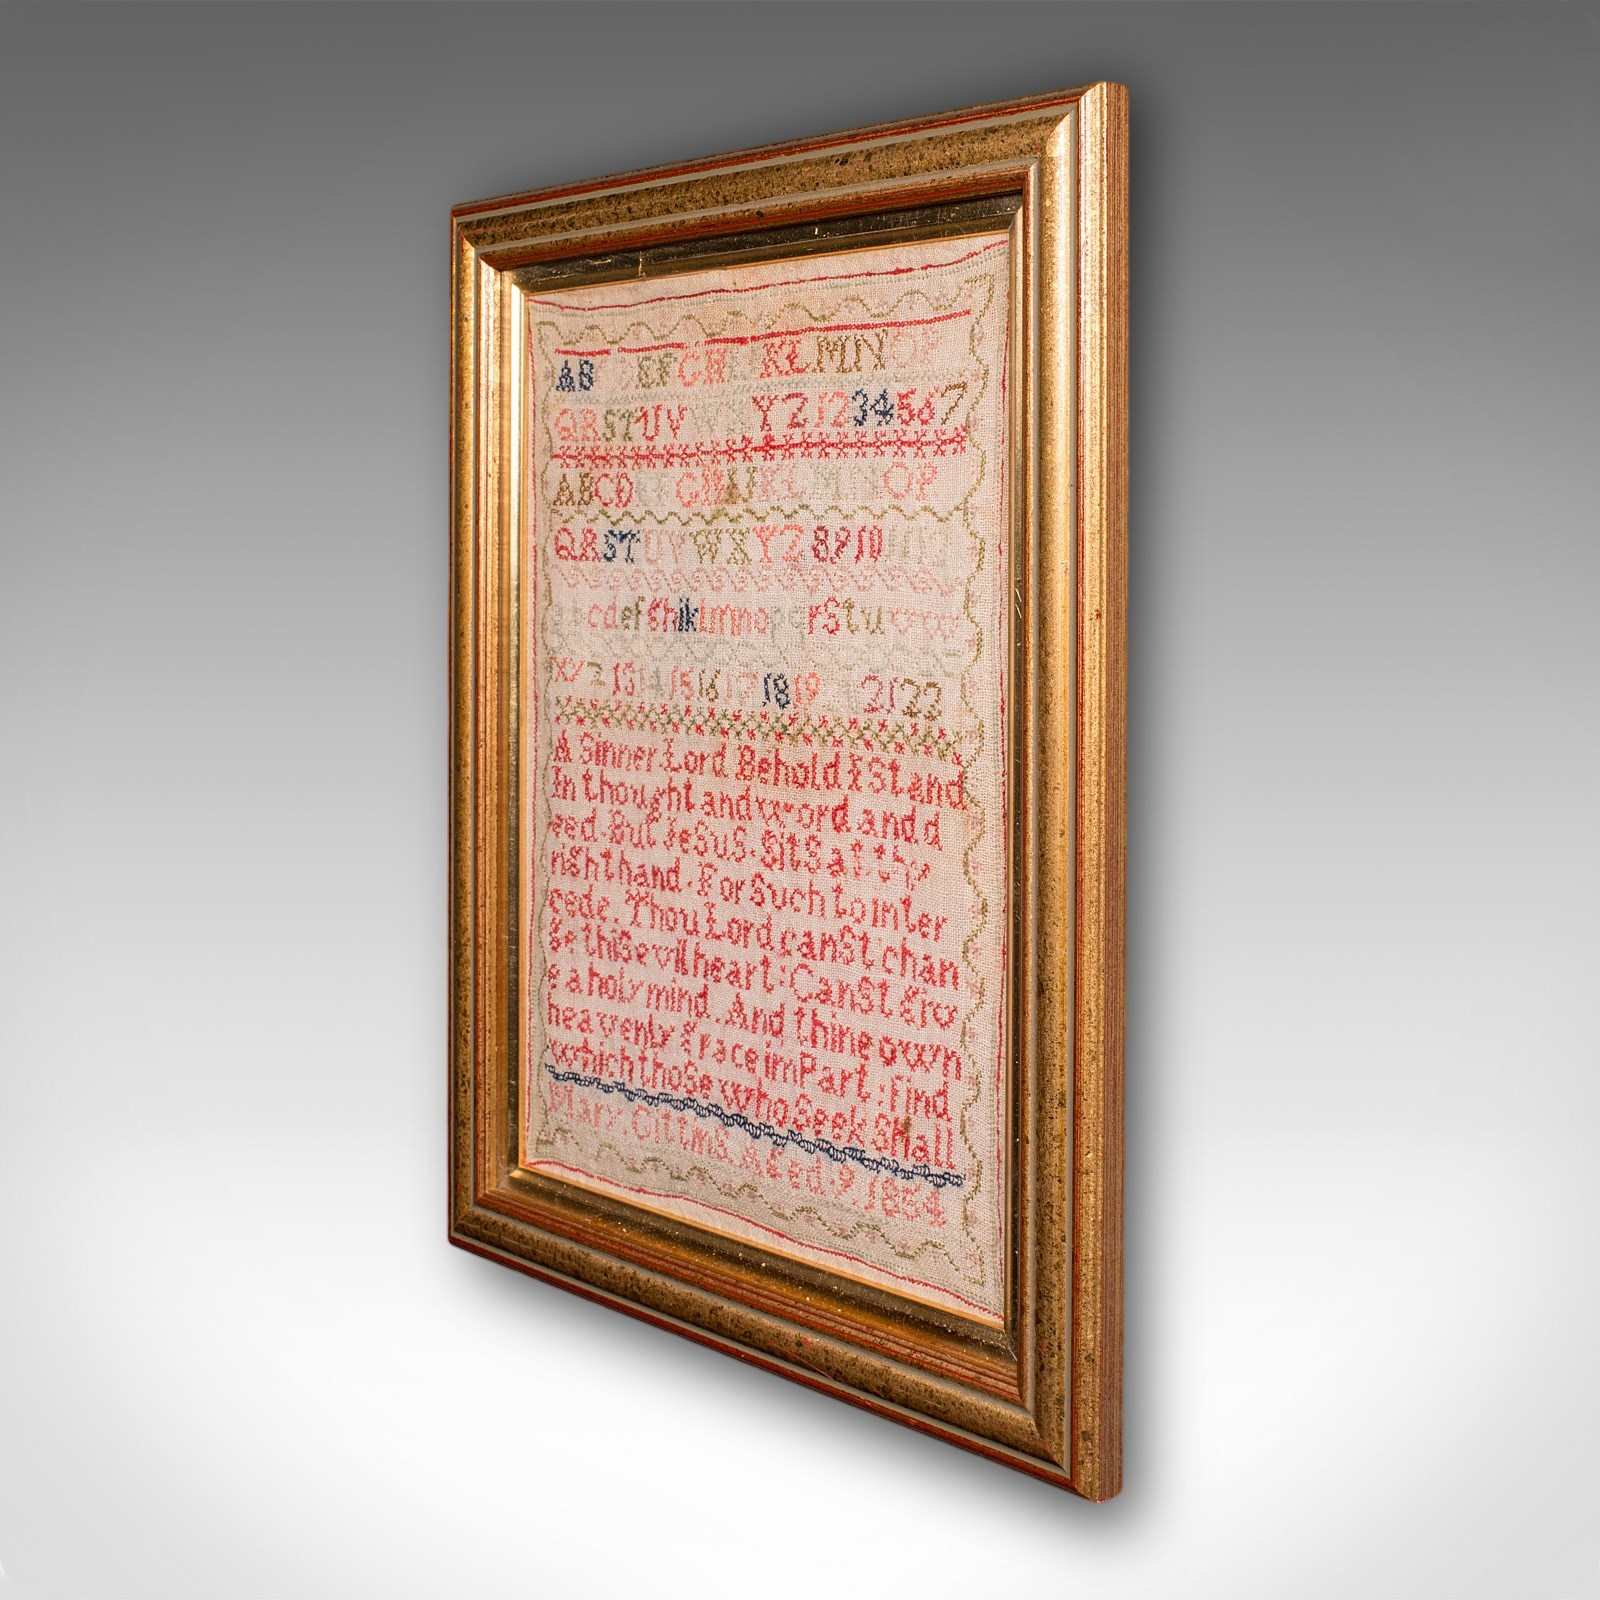 AB EFGH KLMNOP
QRSTUVWXYZ1234567
ABCDEFGHIJKLMNOP
QRSTUVWXYZ8910
abcdefghiklmnopqrstuvw
xyz 13 14 15 16 17 18 19 21 22
A Sinner Lord Behold I Stand
In thought and word and d
eed. But Jesus. Sits at thy
right hand. For Such to inter
cede. Thou Lord canst chan
ge this evil heart: Canst giv
e a holy mind. And thine own
heavenly grace imPart: find
which those who Seek Shall
Mary Gittins Aged. 9. 1854